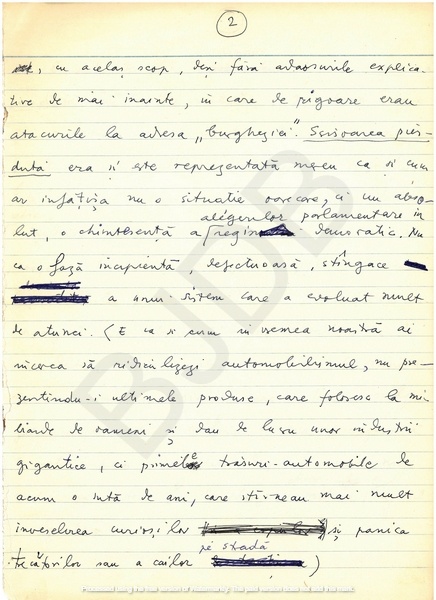 2
, cu acelaș scop, deși fără adaosurile explica-
tive de mai înainte, în care de rigoare erau
atacurile la adresa „burgheziei". Scrisoarea pier-
dută era și este reprezentată mereu ca și cum
ar înfățișa nu o situație oarecare, ci un abso-
alegerilor parlamentare în
lut, o chintesență a regim democratic. Nu
ca o fază incipientă, defectuoasă, stîngace
a unui sistem care a evoluat mult
de atunci. (E ca și cum în vremea noastră ai
încerca să ridiculizezi automobilismul, nu pre-
zentîndu-i ultimele produse, care folosesc la mi-
liarde de oameni și dau de lucru unor industrii
gigantice, ci primele trăsuri-automobile de
acum o sută de ani, care stîrneau mai mult
înveselirea curioșilor și panica
pe stradă
trecătorilor sau a cailor )
BJDB